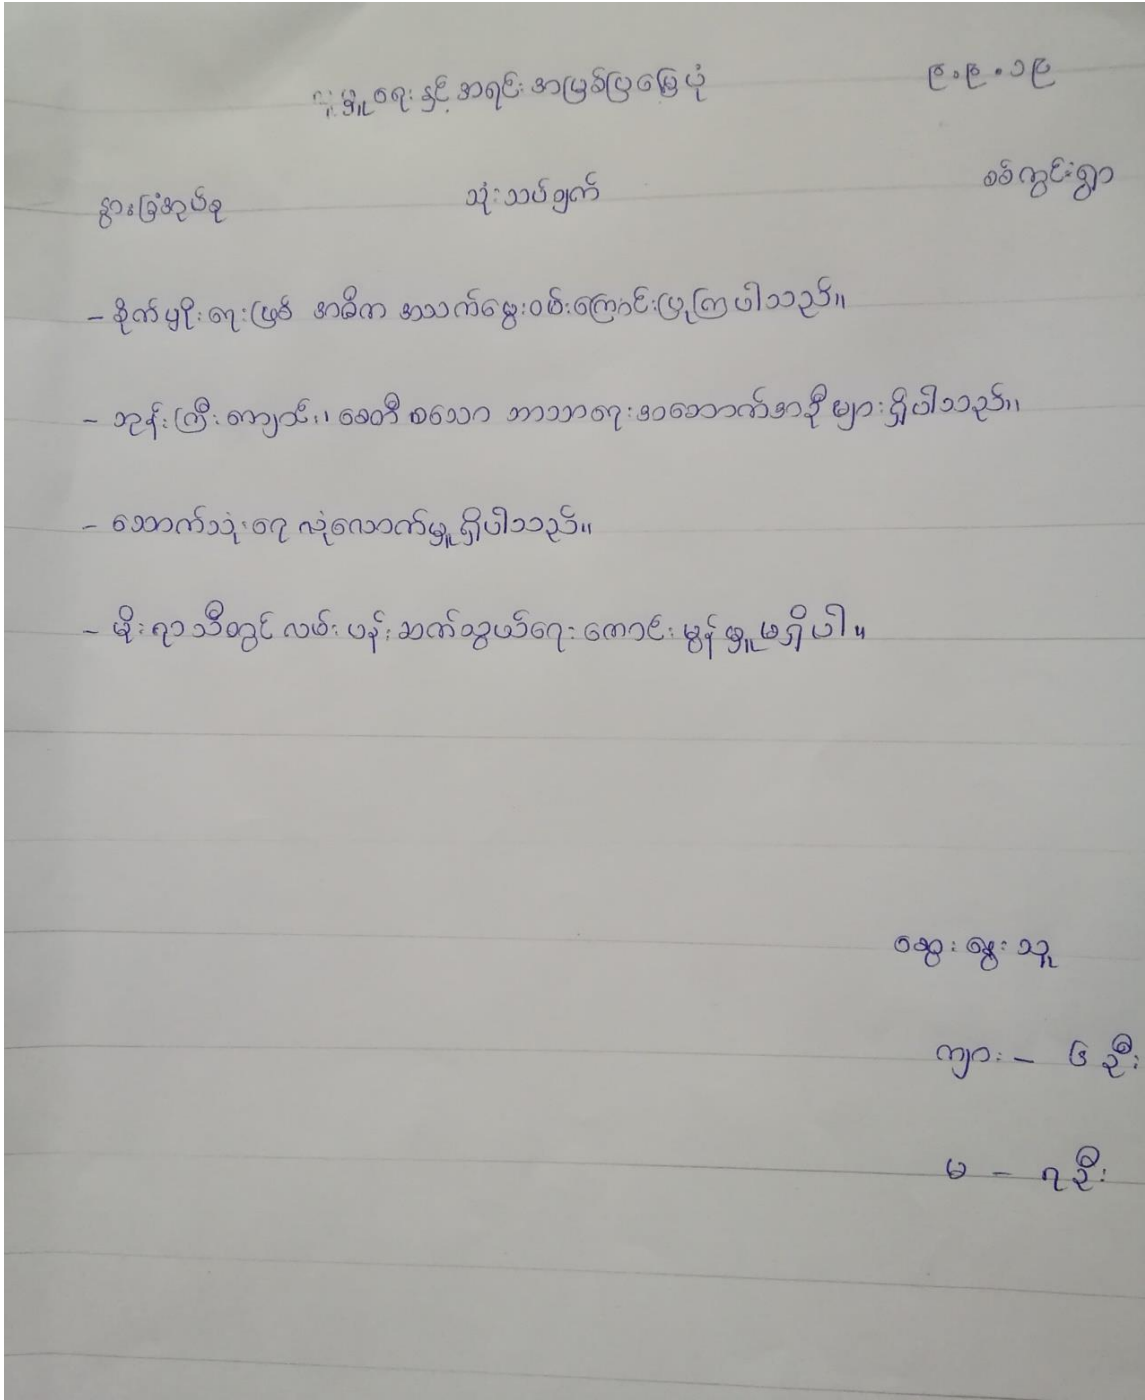 လူမှူရေးနှင့် အရင်းအမြစ်ပြမြေပုံ ၉.၉.၁၉
နွားခြံအုပ်စု သုံးသပ်ချက် စစ်ကွင်းရွာ
- စိုက်ပျိုးရေးဖြင့် အဓိက အသက်မွေးဝမ်းကြောင်းပြုကြပါသည်။
- ဘုန်းကြီးကျောင်း၊ စေတီ စသော ဘာသာရေးအဆောက်အဦများရှိပါသည်။
- သောက်သုံးရေ လုံလောက်မှူရှိပါသည်။
- မိုးရာသီတွင် လမ်းပန်းဆက်သွယ်ရေး ကောင်းမွန်မှူမရှိပါ။
ဆွေးနွေးသူ
ကျား - ၆ ဦး
မ - ၇ ဦး